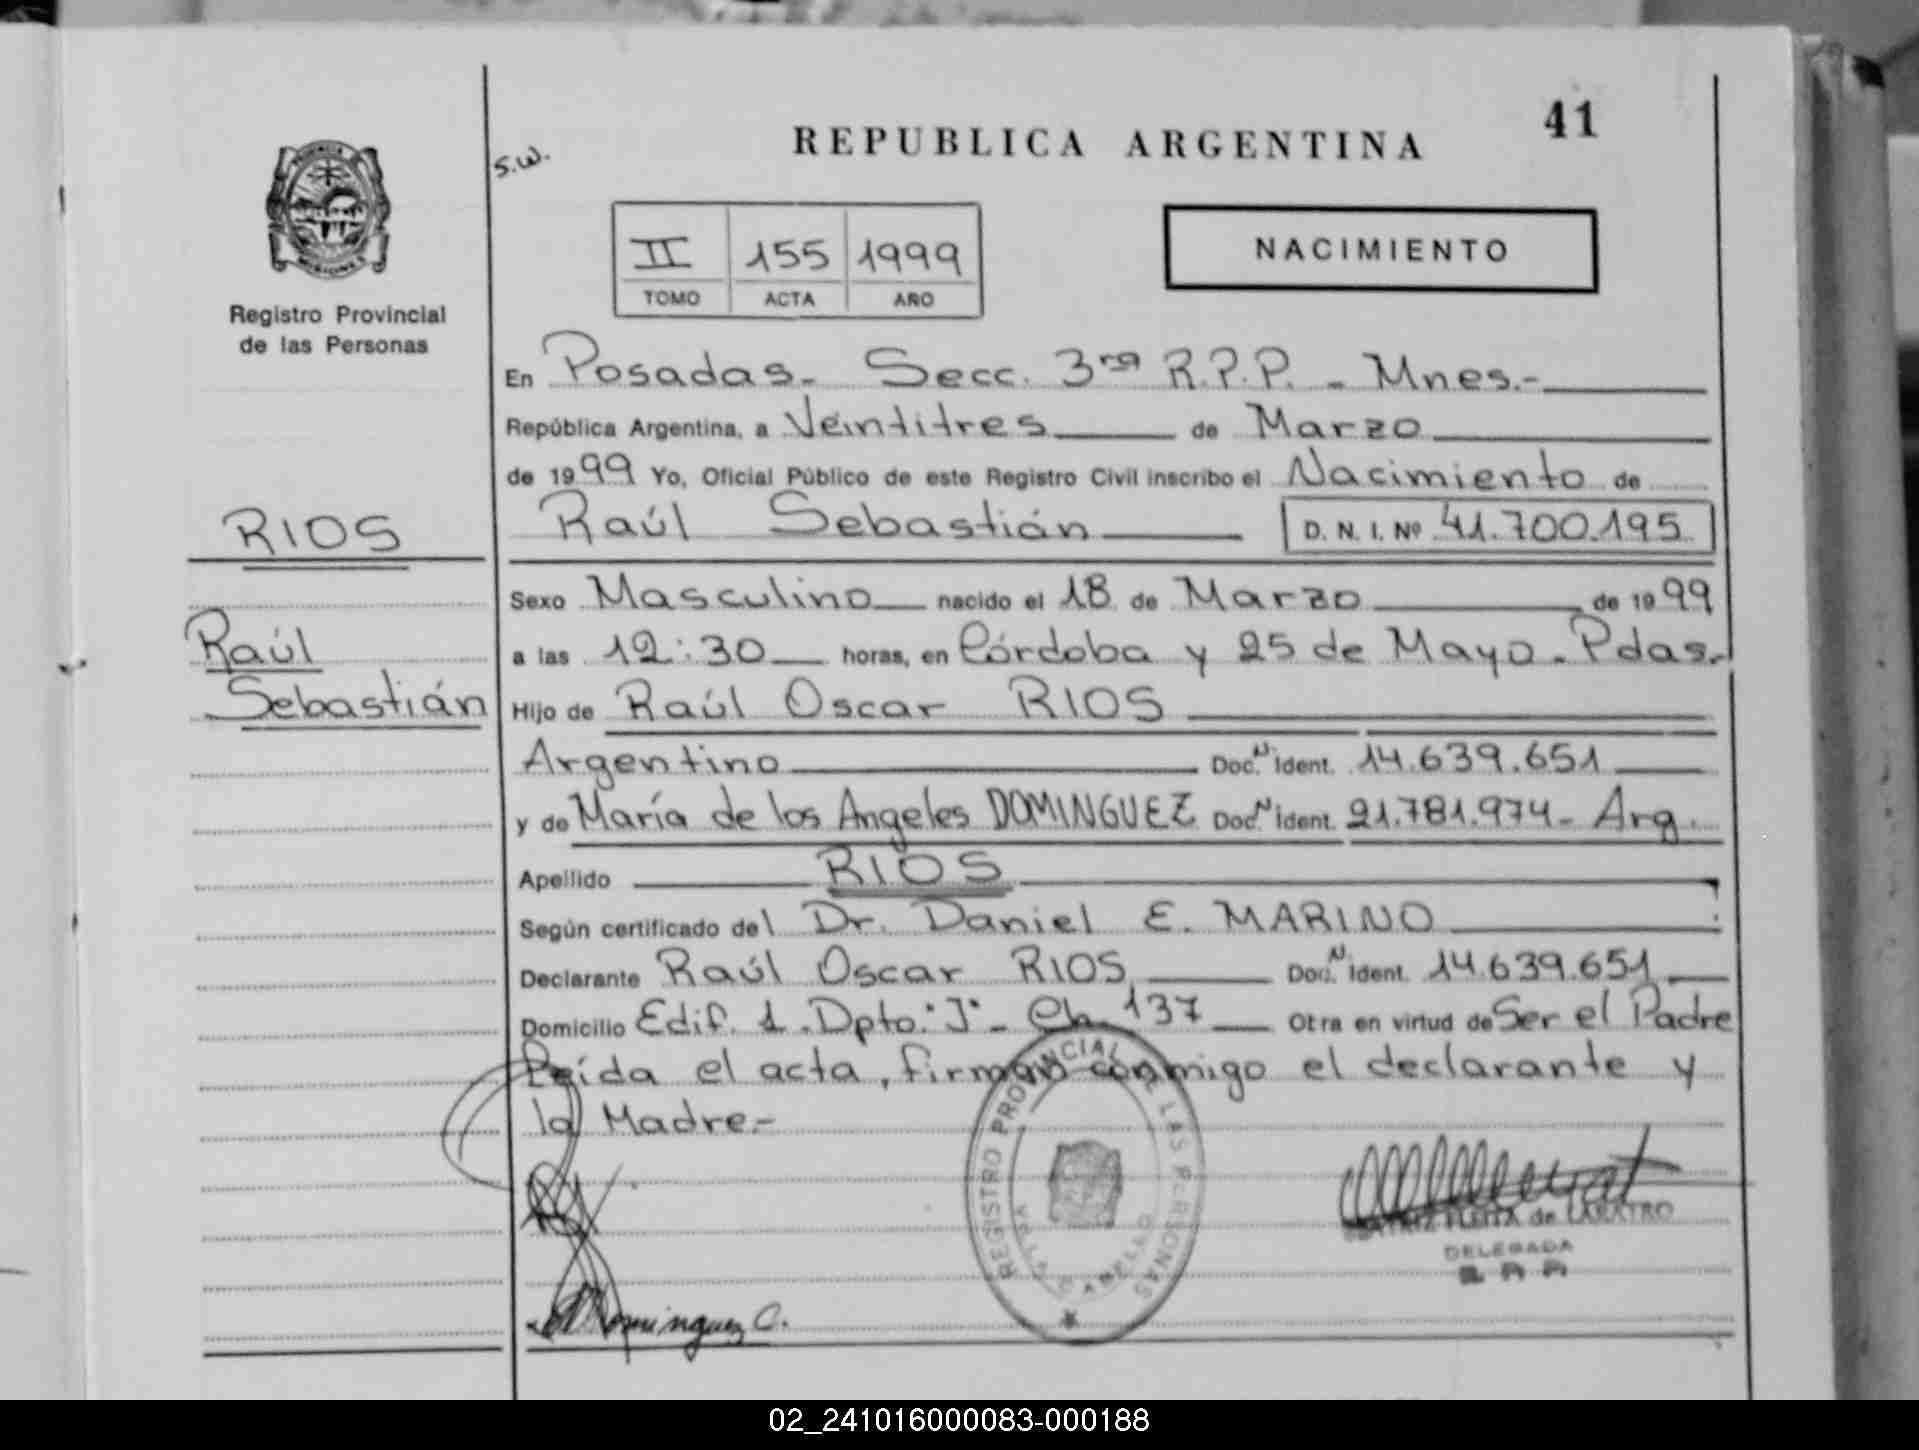 41
REPUBLICA ARGENTINA
s.w.
II 155 1999
TOMO ACTA AÑO
NACIMIENTO
PROVINCIA DE
MISIONES
Registro Provincial
de las Personas
En Posadas.- Secc. 3ra R.P.P. - Mnes.-
República Argentina, a Veintitres de Marzo
de 1999 Yo, Oficial Público de este Registro Civil inscribo el Nacimiento de
RIOS
Raúl Sebastián D. N. I. Nº 41.700.195
Sexo Masculino nacido el 18 de Marzo de 1999
Raúl
a las 12:30 horas, en Córdoba y 25 de Mayo - Pdas.-
Sebastián
Hijo de Raúl Oscar RIOS
Argentino Doc. N Ident. 14.639.651
y de María de los Angeles DOMINGUEZ Doc. N Ident. 21.781.974 - Arg.
Apellido RIOS
Según certificado del Dr. Daniel E. MARINO
Declarante Raúl Oscar RIOS Doc. N Ident. 14.639.651
Domicilio Edif. 1 - Dpto. "J" - Ch. 137 Otra en virtud de Ser el Padre
Leída el acta, firman conmigo el declarante y
la Madre.-
REGISTRO PROVINCIAL DE LAS PERSONAS
de
DELEGADA
Dominguez C.
02_241016000083-000188